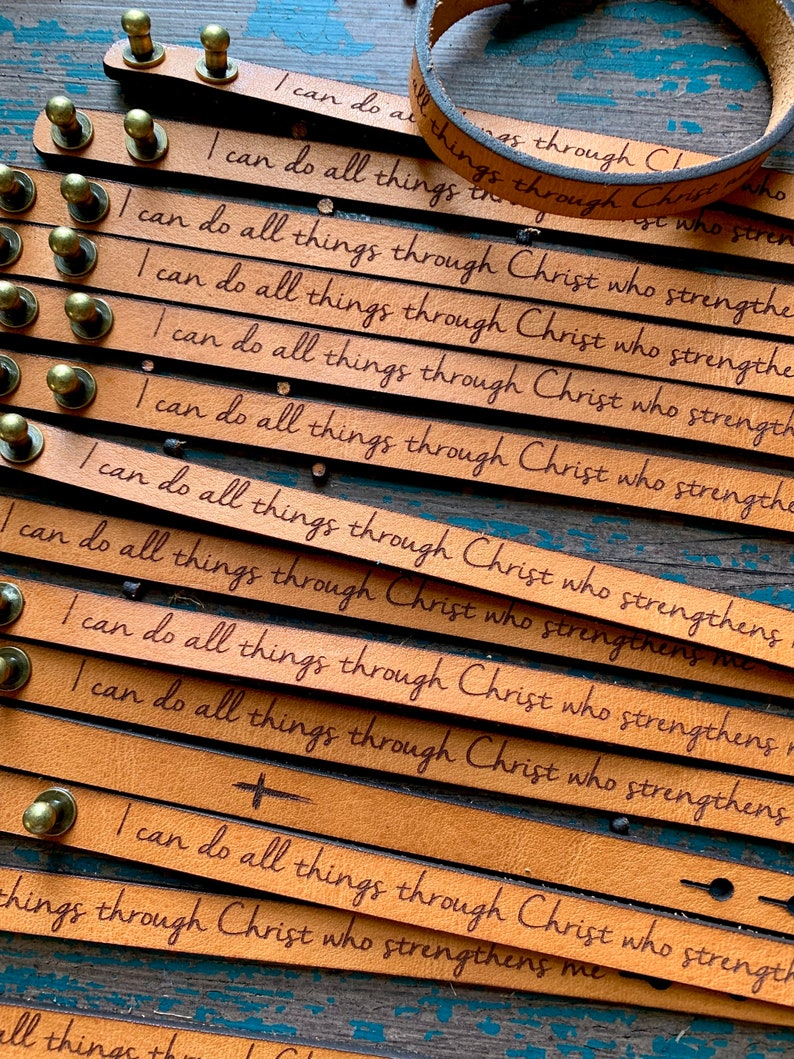 I can do all through Ch who
all things through Christ who
I can do all things through who streng
I can do all things through Christ who strengthe
I can do all things through Christ who strengthe
I can do all things through Christ who strength
I can do all things through Christ who strengthe
I can do all things through Christ who strengthens
I can do all things through Christ who strengthens me
I can do all things through Christ who strengthens
I can do all things through Christ who strengthens
I can do all things through Christ who strength
things through Christ who strengthens me
all things through Christ